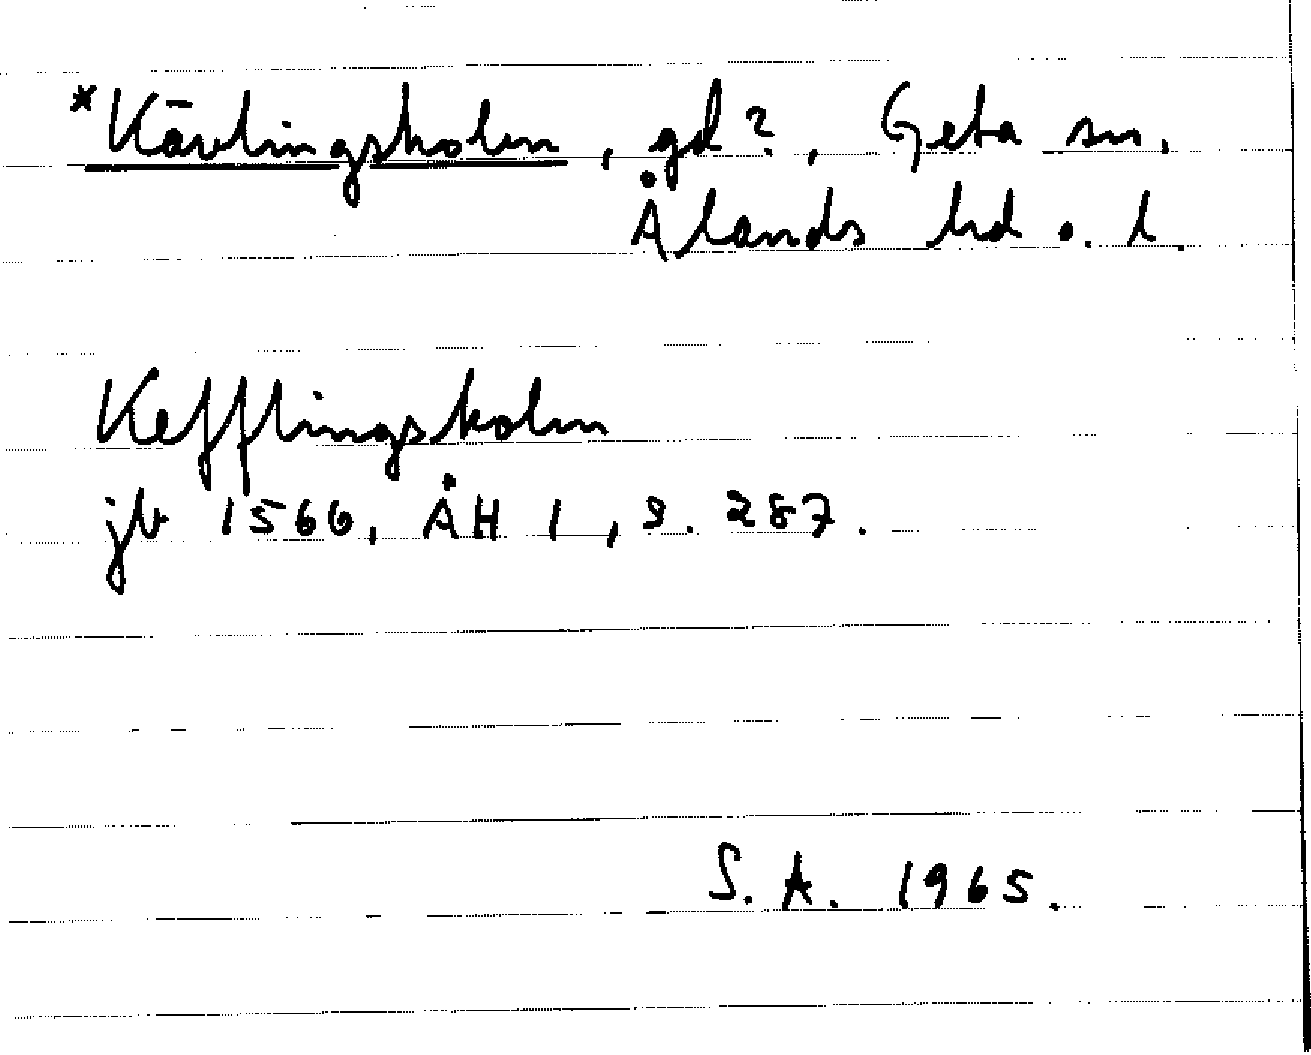 *Kävlingsholm, gd?, Geta sn,
Ålands hd o. l.
Kefflingsholm
jb 1566, ÅH 1, s. 287.
S. A. 1965.